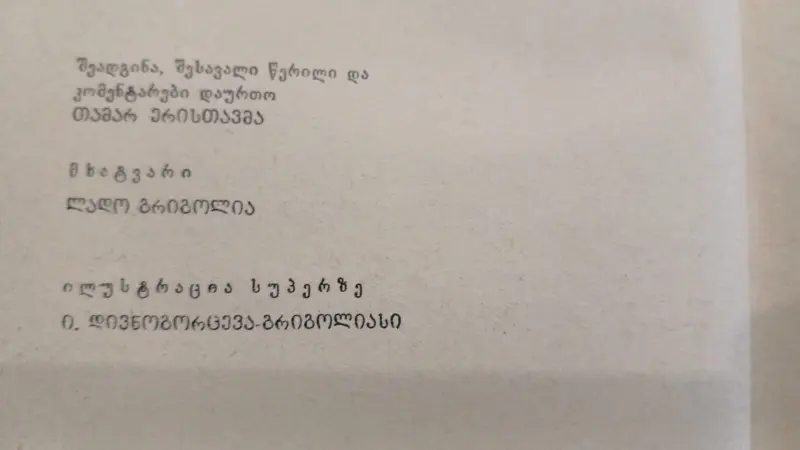 შეადგინა, შესავალი წერილი და
კომენტარები დაურთო
ᲗᲐᲛᲐᲠ ᲔᲠᲘᲡᲗᲐᲕᲛᲐ
მხატვარი
ᲚᲐᲓᲝ ᲒᲠᲘᲒᲝᲚᲘᲐ
ილუსტრაცია სუპერზე
Ი. ᲓᲘᲕᲜᲝᲒᲝᲠᲪᲔᲕᲐ-ᲒᲠᲘᲒᲝᲚᲘᲐᲡᲘ